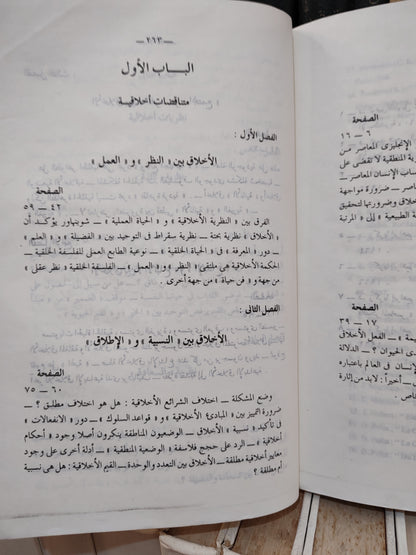 — ٢٦٣ —
البـــاب الأول
متناقضات أخلاقية
الفصل الأول :
الأخلاق بين « النظر » و « العمل »
الصفحة
٤٢ — ٥٩
الفرق بين « النظرية الأخلاقية » و « الحياة العملية » — شوبنهاور يؤكد أن
الأخلاق « نظرية بحتة » — نظرية سقراط فى التوحيد بين « الفضيلة » و « العلم »
— دور « المعرفة » فى « الحياة الخلقية » — نوعية الطابع العملى للفلسفة الخلقية —
الحكمة الأخلاقية هى ملتقى « النظر » و « العمل » — الفلسفة الخلقية « نظر عقلى »
من جهة و « فن حياة » من جهة أخرى .
الفصل الثانى :
الأخلاق بين « النسبية » و « الإطلاق »
الصفحة
٦٠ — ٧٥
وضع المشكلة — اختلاف الشرائع الأخلاقية : هل هو اختلاف مطلق ؟ —
ضرورة التمييز بين « المبادئ الأخلاقية » و « قواعد السلوك » — دور « الانفعالات »
فى تأكيد « نسبية » الأخلاق — الوضعيون المناطقة ينكرون أصلا وجود « أحكام
أخلاقية » — الرد على حجج فلاسفة « الوضعية المنطقية » — أدلة أخرى على وجود
معايير أخلاقية مطلقة — الأخلاق بين التعدد والوحدة — القيم الأخلاقية : هل هى نسبية
أم مطلقة ؟
الصفحة
٦ — ١٦
الإنجليزى المعاصر من
المنطقية لا تقضى على
الإنسان المعاصر —
— ضرورة مواجهة
وضرورتها لتحقيق
الطبيعية » إلى « المرتبة
الصفحة
١٧ — ٣٩
— الفعل الأخلاقى
الحيوان ؟ — الدلالة
الإنسان فى العالم باعتباره
— أخيراً : لابد من إثارة